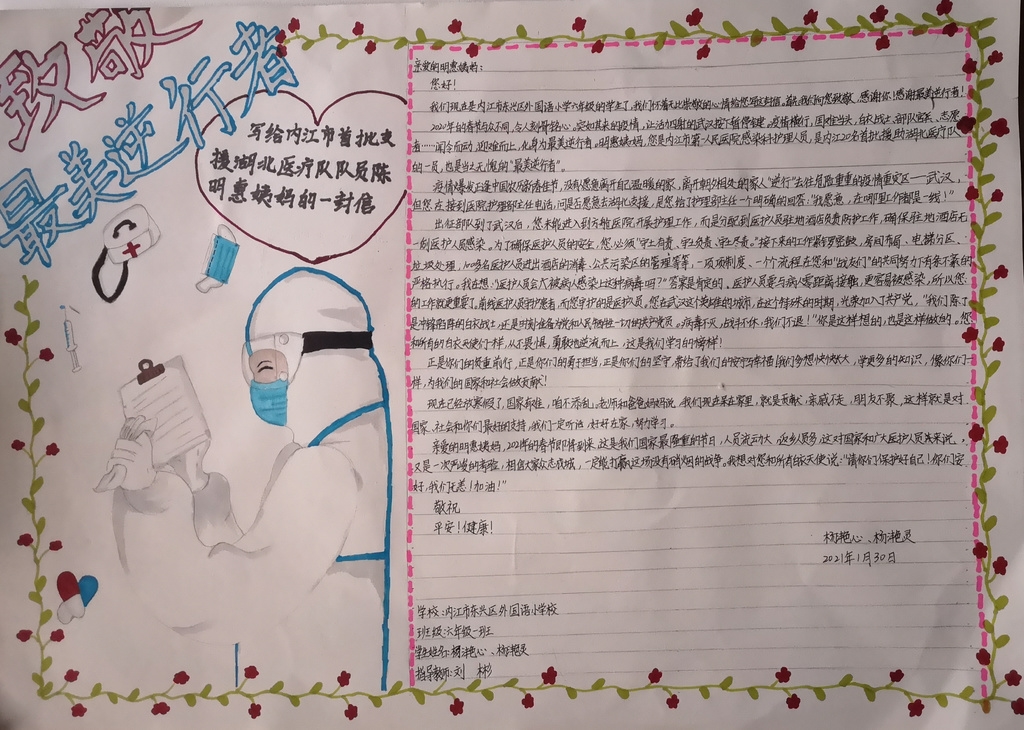 致敬
最美逆行者
写给内江市首批支
援湖北医疗队队员陈
明惠姨妈的一封信
亲爱的明惠姨妈:
您好!
我们现在是内江市东兴区外国语小学六年级的学生了,我们怀着无比崇敬的心情给您写这封信。首先我们向您致敬,感谢你!感谢最美逆行者!
2020年的春节与众不同,令人刻骨铭心。突如其来的疫情,让活力四射的武汉按下暂停键。疫情横行,国难当头,白衣战士、部队官兵、志愿
者……闻令而动,迎难而上,化身为最美逆行者。明惠姨妈,您是内江第一人民医院感染科护理人员,是内江20名首批援助湖北医疗队
的一员,也是当之无愧的“最美逆行者”。
疫情爆发正逢中国农历新春佳节,没有谁愿意离开自己温暖的家,离开朝夕相处的家人“逆行”去往危险重重的疫情重灾区——武汉,
但您在接到医院护理部主任电话,问是否愿意去湖北支援,是您给了护理部主任一个明确的回答:“我愿意,在哪里工作都是一线!”
出征部队到了武汉后,您未能进入到方舱医院开展护理工作,而是分配到医护人员驻地酒店负责防护工作,确保驻地酒店无
一例医护人员感染。为了确保医护人员的安全,您必须“守土有责、守土负责、守土尽责”。接下来的工作紧锣密鼓,房间布局、电梯分区、
垃圾处理,100多名医护人员进出酒店的消毒、公共污染区的管理等等,一项项制度、一个个流程在您和“战友们”的共同努力下有条不紊的
严格执行。我在想:“医护人员会不会被病人感染上这种病毒吗?”答案是肯定的,医护人员要与病人零距离接触,更容易被感染,所以您
的工作就更重要了。前线医护人员守护患者,而您守护的是医护人员。您在武汉这个英雄的城市,在这个特殊的时期,光荣加入了共产党,“我们除了
是冲锋陷阵的白衣战士,还是时刻准备为党和人民牺牲一切的共产党员。病毒不灭,战斗不休,我们不退!”你是这样想的,也是这样做的。您
和所有的白衣天使们一样,从不畏惧,勇敢地逆流而上,这是我们学习的榜样!
正是你们的负重前行,正是你们的勇于担当,正是你们的坚守,带给了我们的安宁与幸福!我们多想快快长大,学更多的知识,像你们一
样,为我们的国家和社会做贡献!
现在已经放寒假了,国家有难,咱不添乱,老师和爸爸妈妈说,我们现在呆在家里,就是贡献,亲戚不走,朋友不聚,这样就是对
国家、社会和你们最好的支持,我们一定听话,好好在家,努力学习。
亲爱的明惠姨妈,2021年的春节即将到来,这是我们国家最隆重的节日,人员流动大,返乡人员多,这对国家和广大医护人员来说,
又是一次严峻的考验,相信大家众志成城,一定能打赢这场没有硝烟的战争。我想对您和所有白衣天使说:“请你们保护好自己!你们安
好,我们无恙!加油!”
敬祝
平安!健康!
杨艳心、杨艳灵
2021年1月30日
学校:内江市东兴区外国语小学校
班级:六年级一班
学生姓名:杨艳心、杨艳灵
指导教师:刘 彬